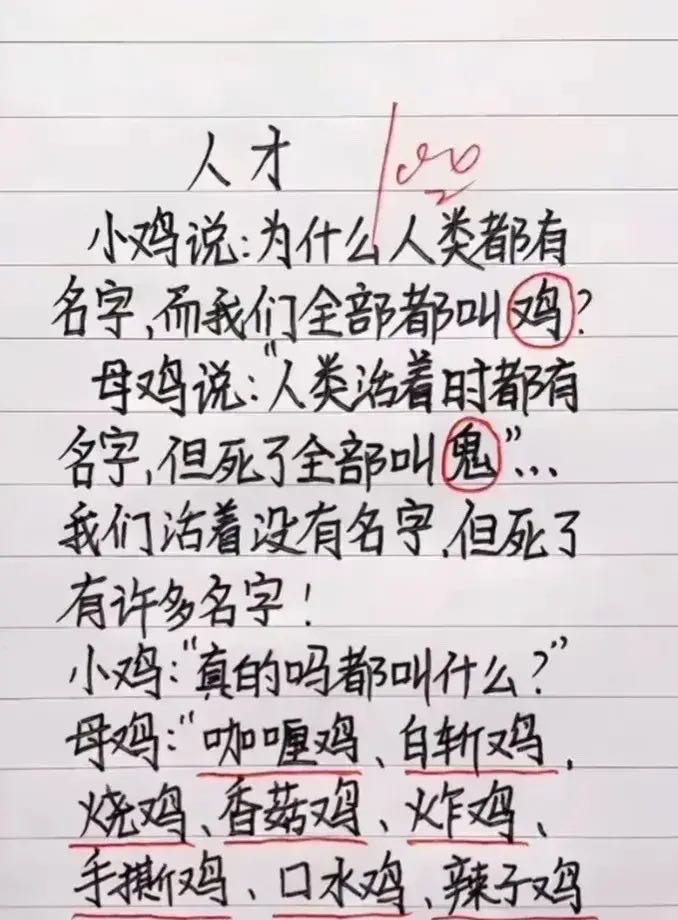 人才 100
小鸡说:为什么人类都有
名字,而我们全部都叫鸡?
母鸡说:"人类活着时都有
名字,但死了全部叫鬼"...
我们活着没有名字,但死了
有许多名字!
小鸡:"真的吗都叫什么?"
母鸡:"咖喱鸡、白斩鸡、
烧鸡、香菇鸡、炸鸡、
手撕鸡、口水鸡、辣子鸡